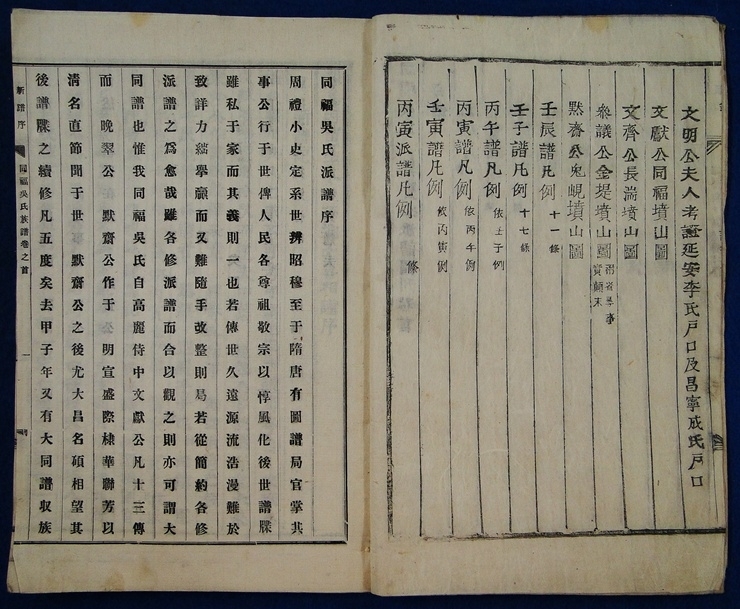 文明公夫人考證延安李氏戶口及昌寧成氏戶口
文獻公同福墳山圖
文齊公長湍墳山圖
參議公金堤墳山圖
默齋公鬼峴墳山圖
壬辰譜凡例 十一條
壬子譜凡例 十七條
丙午譜凡例 依壬子例
丙寅譜凡例 依丙午例
壬寅譜凡例 依丙寅例
丙寅派譜凡例 條
同福吳氏派譜序
周禮小史定系世辨昭穆至于隋唐有圖譜局官掌其
事公行于世俾人民各尊祖敬宗以惇風化後世譜牒
雖私于家而其義則一也若傳世久遠源流浩漫難於
致詳力絀擧贏而又難隨手改整則曷若從簡約各修
派譜之爲愈哉雖各修派譜而合以觀之則亦可謂大
同譜也惟我同福吳氏自高麗侍中文獻公凡十三傳
而晚翠公在默齋公作于公明宣盛際棣華聯芳以
淸名直節聞于世默齋公之後尤大昌名碩相望其
後譜牒之續修凡五度矣去甲子年又有大同譜収族
新譜序
同福吳氏族譜卷之首
一